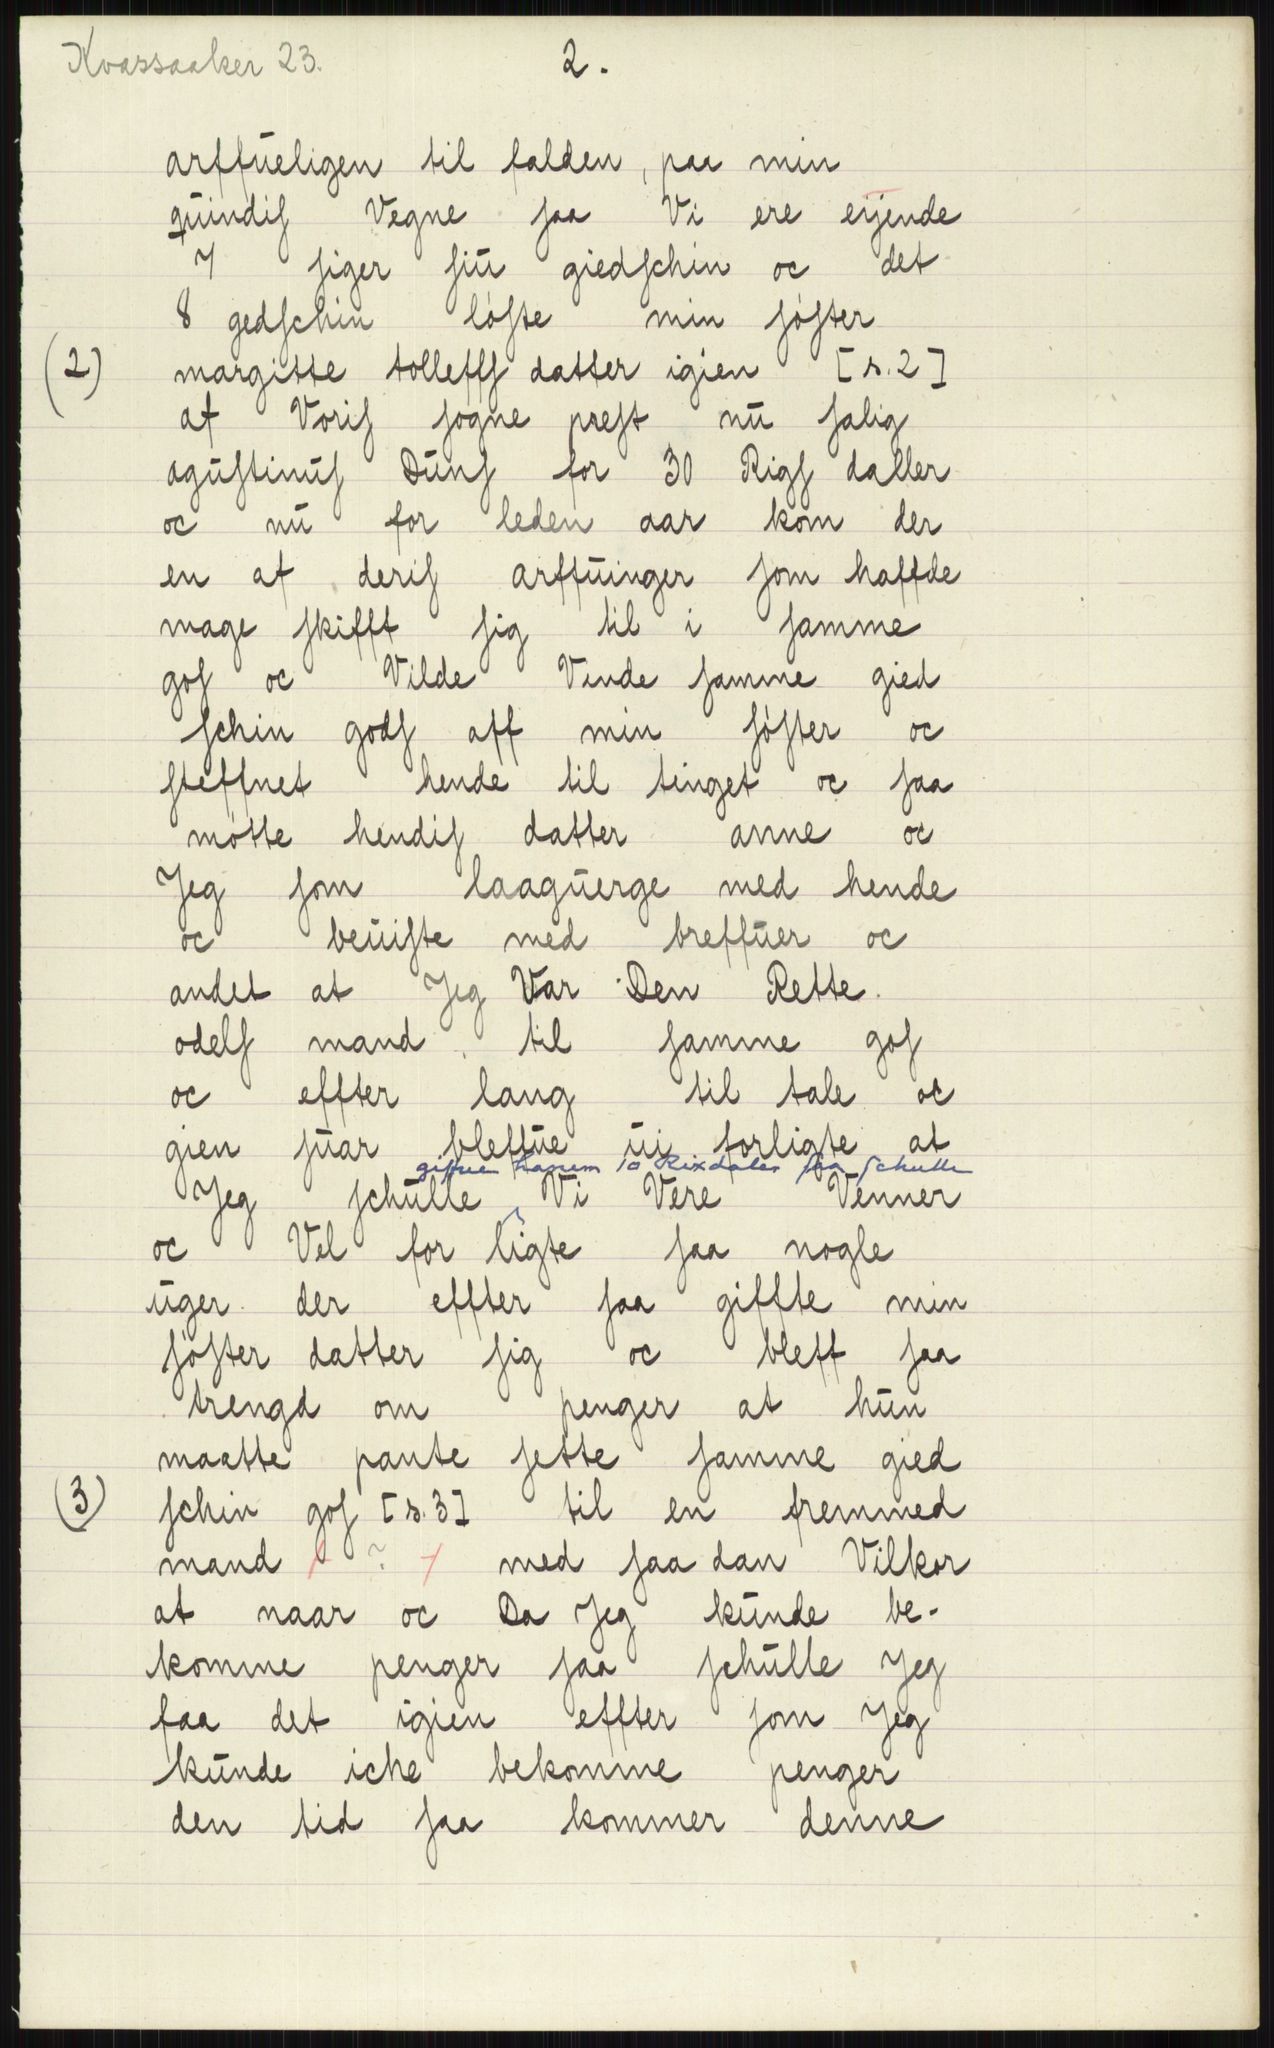 Kvassaaker 23.
2.
arffūeligen til falden, paa min
qūindiſ Vegne ſaa Vi ere eӯende
7 ſiger ſiū giedſchin oc det
8 gedſchin løſte min ſøſter
(2) margitte tolleffſ datter igien [s.2]
af Voriſ ſogne preſt nū ſalig
agūſtinūſ Dūnſ for 30 Rigſ daller
oc nū for leden aar kom der
en af deriſ arffūinger ſom haffde
mage ſkifft ſig til i ſamme
goſ oc Vilde Vinde ſamme gied
ſchin godſ aff min ſøſter oc
ſteffnet hende til tinget oc ſaa
møtte hendiſ datter anne oc
Jeg ſom laagūerge med hende
oc beūiſte med breffūer oc
andet at Jeg Var Den Rette
odelſ mand til ſamme goſ
oc effter lang til tale oc
gien ſūar bleffūe ūi forligte at
giffue hanem 10 Rixdaler ſaa ſchulle
Jeg ſchūlle Vi Vere Venner
oc Vel for ligte ſaa nogle
ūger der effter ſaa giffte min
ſøſter datter ſig oc bleff ſaa
trengd om penger at hūn
maatte pante ſette ſamme gied
(3) ſchin goſ [s.3] til en fremmed
mand / ? / med ſaa dan Vilkor
at naar oc Da Jeg kūnde be-
komme penger ſaa ſchūlle Jeg
faa det igien effter ſom Jeg
kūnde icke bekomme penger
den tid ſaa kommer denne